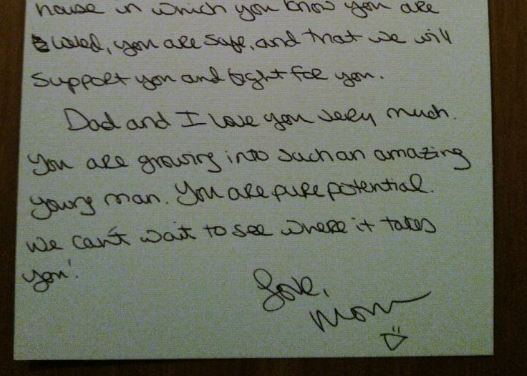 house in which you know you are
loved, you are safe, and that we will
support you and fight for you.
Dad and I love you very much.
You are growing into such an amazing
young man. You are pure potential.
We can't wait to see where it takes
you!
Love,
Mom